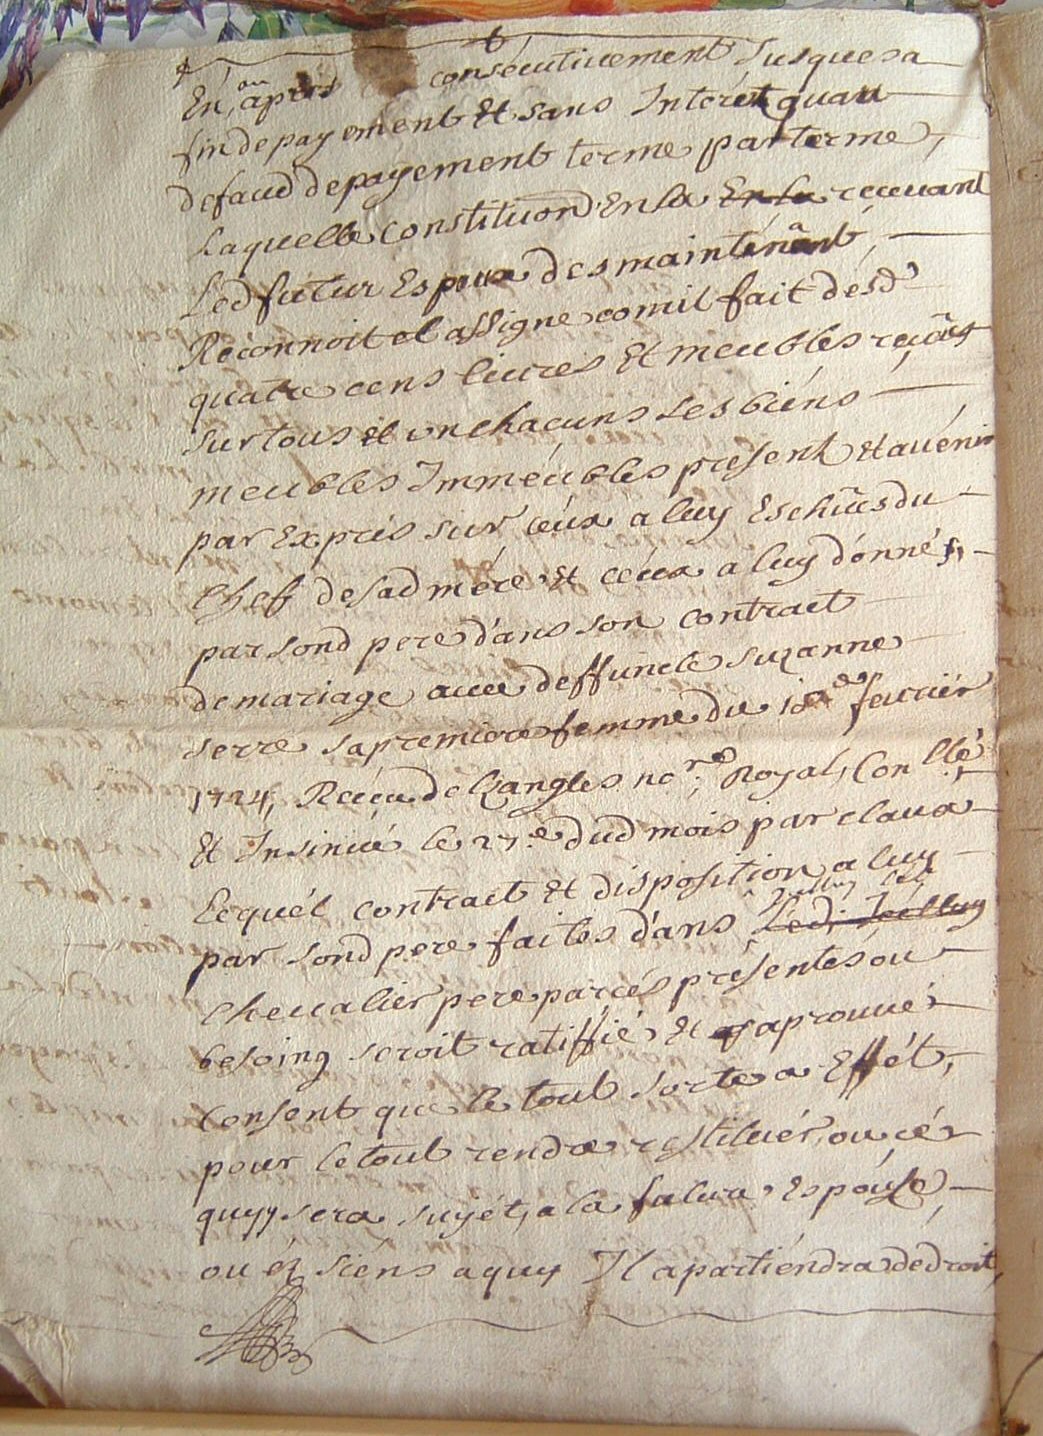 En, an après consécutivement Jusques a
fin de payement Et sans Interét quau
defaud de payement terme par terme,
Laquelle Constitution En la En la recevant
Led futur Espoux des maintenant,
Reconnoit et assigne comil fait desd
quatre cens livres Et meubles recûs
sur tous et un chacuns Les biéns
meubles Imméubles present et avénir
par Exprés sur céux a luy Eschûs du
Chef de sad mére Et céux a luy donnés,
par sond pere dans son contract
de mariage avec deffuncte Suzanne
serre sa premiere femme du 18 fevriér
1724, Recéu de Langles no.re Royal, Con.llé
Et Insinué le 27.e dud mois par claux
Lequél contract et disposition a luy
par sond pere faites dans Led. Jcelluy
Chevaliér pere par cés presentes ou
besoing seroit ratiffié Et aprouvé
Consent que le tout sorte a Effét,
pour le tout rendre restituér, ou cé
quyy sera sujét, a la future Espouse,
ou éz siéns a quy Il apartiéndra de droit,